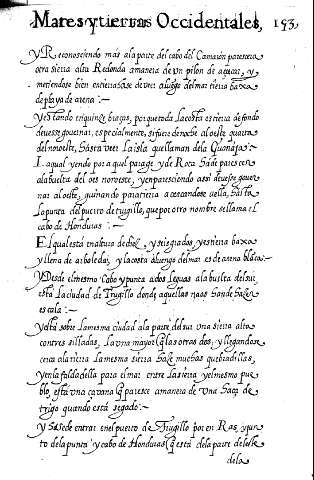 Mares y tierras Occidentales, 193
y Reconosciendo mas ala parte del cabo del Camaron parescera
otra sierra alta Redonda amanera de un pilon de açucar, y
metiendose bien en tierra ha se de ver aluego del mar tierra baxa
de playa de arena:~
y estando en quinze braças, porque toda la costa es tierra de fondo
de uese gouernar, especialmente, si fuere de noche al oeste quarta
del noroeste, hasta ver la isla que llaman dela Guanaja:~
la qual yendo por aquel parage y de Rota ha de parescer
ala buelta del oes noroeste, y en paresciendo assi deuese gouer
nar al oeste, guinando para tierra acercandose a ella, hasta
la punta del puerto de trugillo, que por otro nombre se llama el
cabo de Honduras:~
El qual está en altura de diez y seis grados, y es tierra baxa
y llena de arboledas, y la costa aluengo del mar es de arena blanca:~
y Desde el mesmo Cabo y punta ados leguas ala buelta del sur
está la ciudad de Trugillo donde aquellas naos han de hazer
escala:~
y esta sobre la mesma ciudad ala parte del sur una sierra alta
con tres silladas, la una mayor q̃ las otras dos, y llegandose
cerca ala tierra la mesma sierra haze muchas quebradillas,
y en la falda della para el mar entre la sierra y el mesmo pue
blo, está una çavana q̃ paresce amanera de una haça de
trigo quando está segado:~
y ha se de entrar en el puerto de Trugillo por en Ras, y jun
to dela punta y cabo de Honduras q̃ está dela parte del este
dela